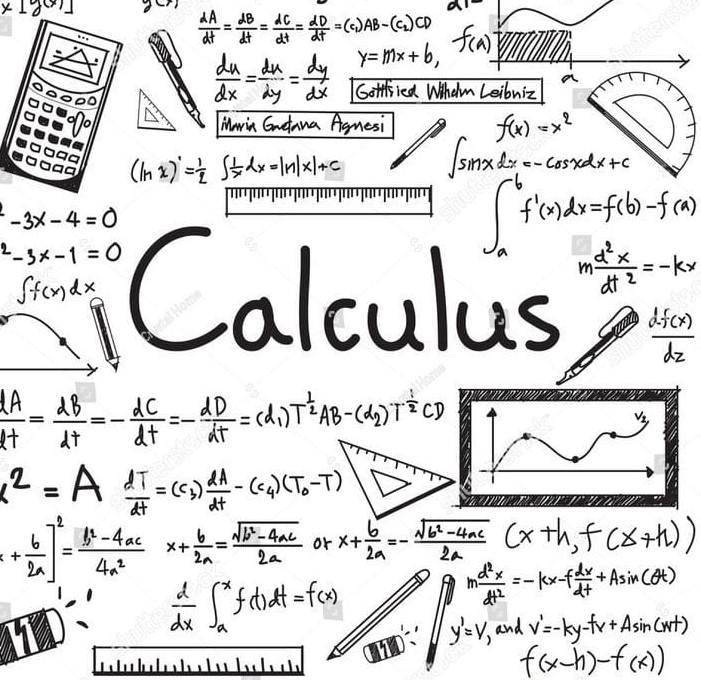 dA/dt = dB/dt = dC/dt = dD/dt = (c₁)AB-(c₂)CD
f(a)
y=mx+b,
du/dx = du/dy = dy/dx
Gottfried Wilhelm Leibniz
a
Maria Gaetana Agnesi
f(x) = x²
(ln x)' = 1/2 ∫1/x dx = ln|x|+c
∫sinx dx = -cosxdx+c
∫ₐᵇ f'(x)dx=f(b)-f(a)
²-3x-4=0
²-3x-1=0
m d²x/dt² = -kx
∫f(x)dx
Calculus
df(x)/dz
dA/dt = dB/dt = -dC/dt = -dD/dt = (d₁)T^½AB-(d₂)T^½CD
V₂
² = A
dT/dt = (c₃)dA/dt - (c₄)(T₀-T)
+ b/2a]² = b²-4ac/4a²
x+b/2a = √b²-4ac/2a or x+b/2a = -√b²-4ac/2a
(x+h,f(x+h))
m d²x/dt² = -kx-f dx/dt + Asin(θt)
d/dx ∫ₐˣ f(t)dt=f(x)
y'=V, and v'=-ky-fv+Asin(wt)
f(x-h)-f(x))